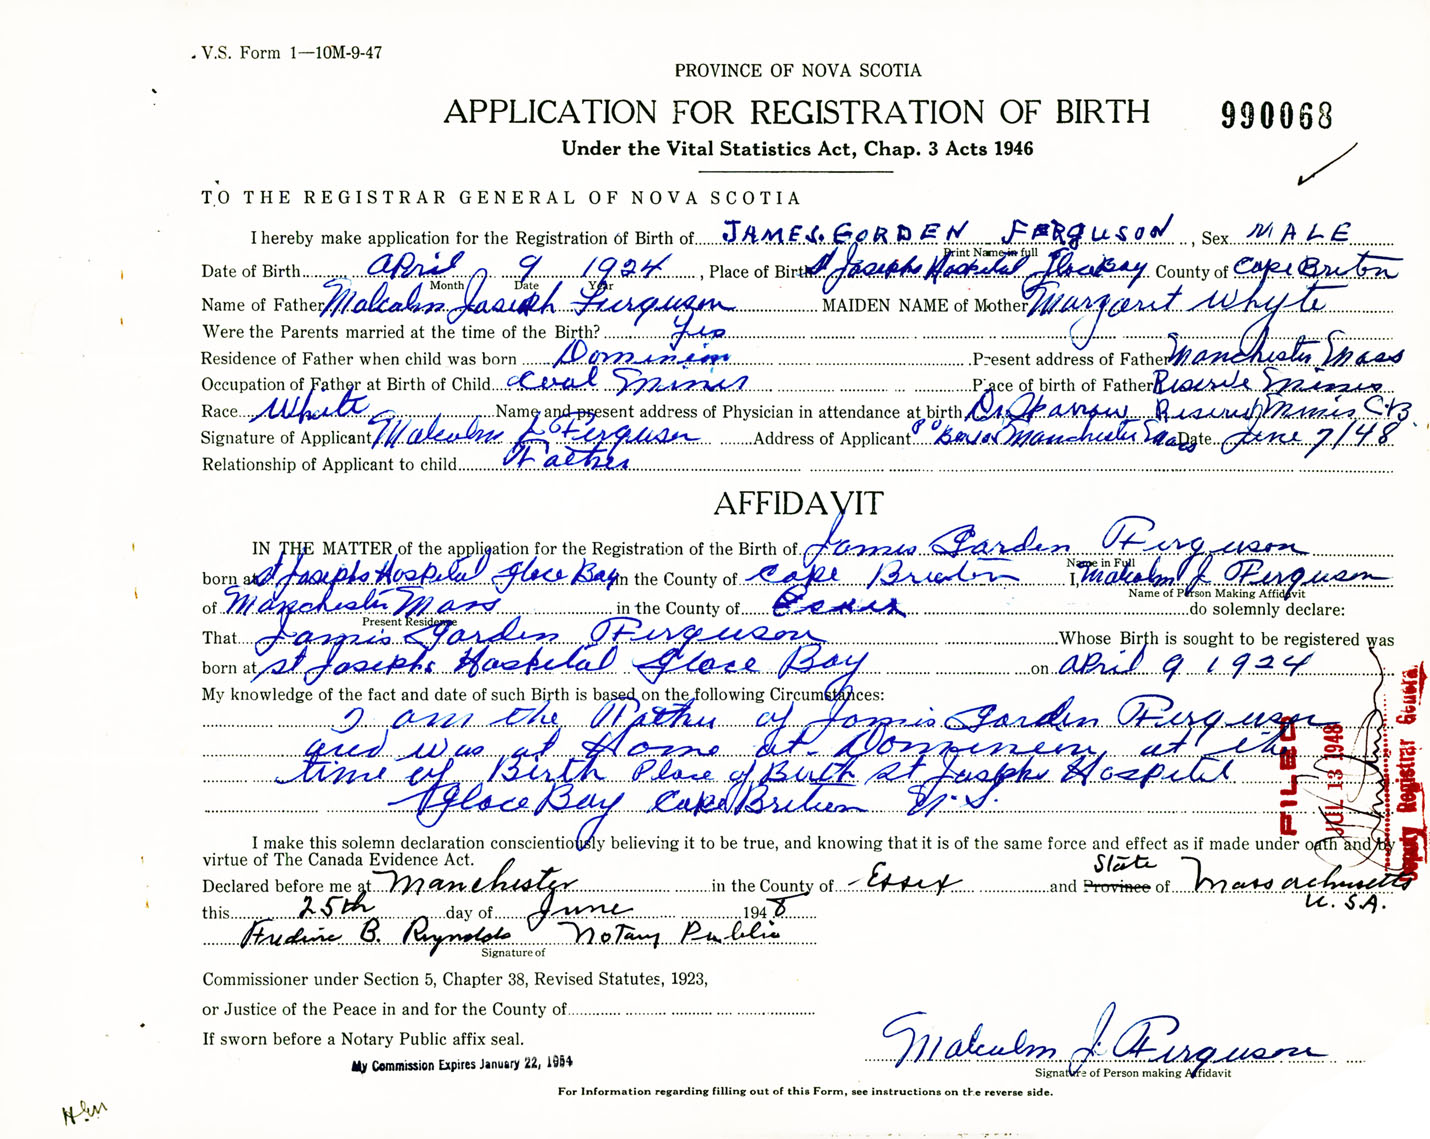 V.S. Form 1—10M-9-47
PROVINCE OF NOVA SCOTIA
APPLICATION FOR REGISTRATION OF BIRTH 990068
Under the Vital Statistics Act, Chap. 3 Acts 1946
TO THE REGISTRAR GENERAL OF NOVA SCOTIA
I hereby make application for the Registration of Birth of JAMES. GORDEN FERGUSON, Sex MALE
Print Name in full
Date of Birth April 9 1924, Place of Birth St Josephs Hospital Glace Bay County of Cape Briton
Month Date Year
Name of Father Malcolm Joseph Ferguson MAIDEN NAME of Mother Margaret Whyte
Were the Parents married at the time of the Birth? Yes
Residence of Father when child was born Dominion Present address of Father Manchester Mass
Occupation of Father at Birth of Child Coal Miner Place of birth of Father Reserve Mines
Race White Name and present address of Physician in attendance at birth Dr Sparrow Reserve Mines C B
Signature of Applicant Malcolm J Ferguson Address of Applicant Manchester Mass Date June 7/48
Relationship of Applicant to child Father
AFFIDAVIT
IN THE MATTER of the application for the Registration of the Birth of James Gorden Ferguson
Name in Full
born at St Josephs Hospital Glace Bay in the County of Cape Breton I, Malcolm J Ferguson
Name of Person Making Affidavit
of Manchester Mass in the County of Essex do solemnly declare:
Present Residence
That James Gorden Ferguson Whose Birth is sought to be registered was
born at St Josephs Hospital Glace Bay on April 9 1924
My knowledge of the fact and date of such Birth is based on the following Circumstances:
I am the Father of James Gorden Ferguson
and was at Home at Dominion, at the
time of Birth Place of Birth St Josephs Hospital
Glace Bay Cape Briton N.S.
FILED
JUL 13 1948
Deputy Registrar General
I make this solemn declaration conscientiously believing it to be true, and knowing that it is of the same force and effect as if made under oath and by
virtue of The Canada Evidence Act.
State
Declared before me at Manchester in the County of Essex and Province of Massachusetts
U.S.A.
this 25th day of June 1948
B. Reynolds Notary Public
Signature of
Commissioner under Section 5, Chapter 38, Revised Statutes, 1923,
or Justice of the Peace in and for the County of
If sworn before a Notary Public affix seal.
Malcolm J. Ferguson
My Commission Expires January 22, 1954
Signature of Person making Affidavit
For Information regarding filling out of this Form, see instructions on the reverse side.